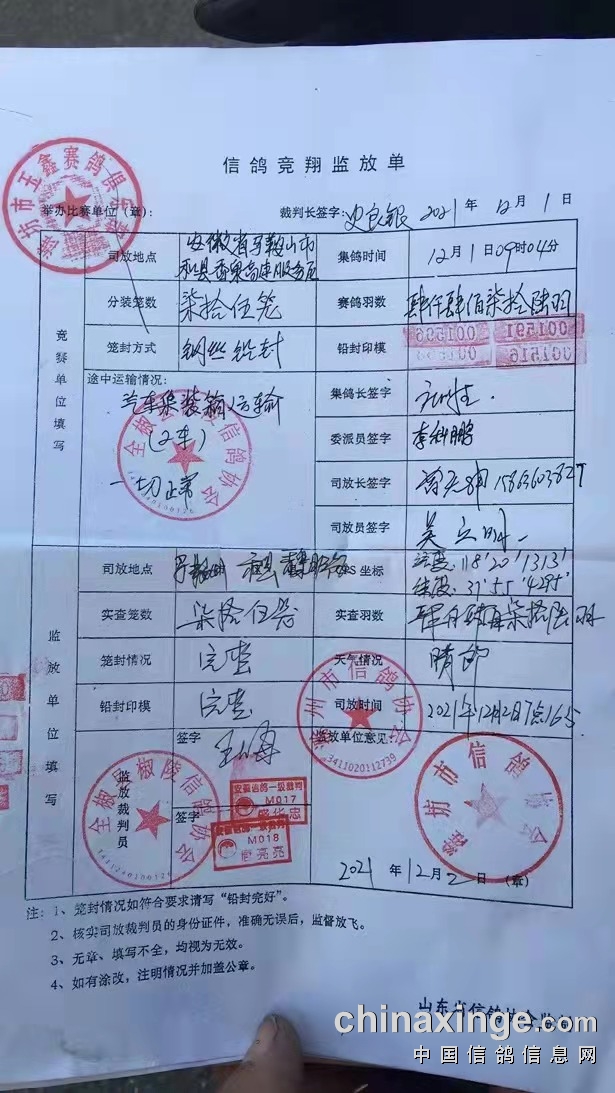 信鸽竞翔监放单
举办比赛单位(章):
裁判长签字: 2021年12月1日
竞赛单位填写
司放地点 安徽省马鞍山市
和县香泉高速服务区
集鸽时间 12月1日09时04分
分装笼数 柒拾伍笼
赛鸽羽数 肆仟肆佰柒拾陆羽
笼封方式 钢丝铅封
铅封印模
001591
001516
途中运输情况:
汽车集装箱运输
(2车)
一切正常
集鸽长签字
委派员签字 李科鹏
司放长签字 15863603827
司放员签字
监放单位填写
司放地点
坐标 118°20'1313'
'4295'
实查笼数 柒拾伍笼
实查羽数 肆仟肆佰柒拾陆羽
笼封情况 完整
天气情况 晴
铅封印模 完整
司放时间 2021年12月2日7点16分
监放裁判员
签字
监放单位意见:
签字
安徽信鸽一级裁判
M017
M018
亮亮
滁州市信鸽协会
3411020112739
潍坊市信鸽协会
全椒县椒陵信鸽协会
潍坊市玉鑫赛鸽俱乐部
2021年12月2日(章)
注:1、笼封情况如符合要求请写“铅封完好”。
2、核实司放裁判员的身份证件,准确无误后,监督放飞。
3、无章、填写不全,均视为无效。
4、如有涂改,注明情况并加盖公章。
山东省信鸽协会监制
chinaxinge.com
中国信鸽信息网